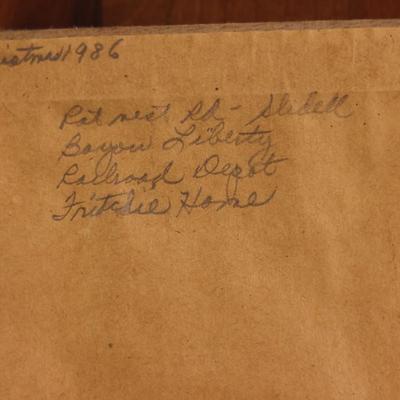 istmas 1986
Rat nest Rd - Slidell
Bayou Liberty
Railroad Depot
Fritchie Home